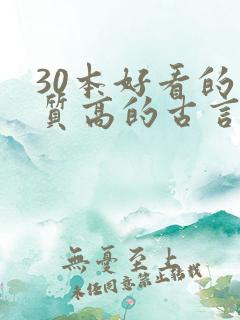 30本好看的
质高的古言
無憂至上
未经同意禁止转载